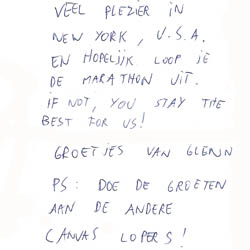 VEEL PLEZIER IN
NEW YORK, U.S.A.
EN HOPELIJK LOOP JE
DE MARATHON UIT.
IF NOT, YOU STAY THE
BEST FOR US!
GROETJES VAN GLENN
PS: DOE DE GROETEN
AAN DE ANDERE
CANVAS LOPERS!